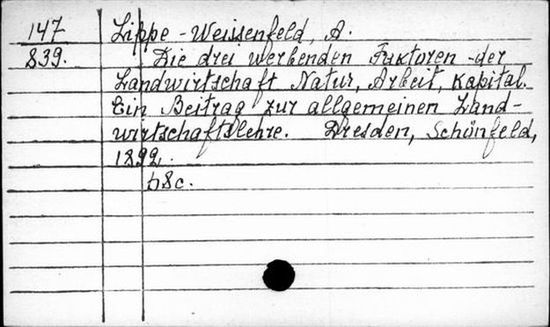 147 Lippe-Weissenfeld, A.
839. Die drei werbenden Faktoren der
Landwirtschaft Natur, Arbeit, Kapital.
Ein Beitrag zur allgemeinen Land-
wirtschaftslehre. Dresden, Schönfeld,
1892.